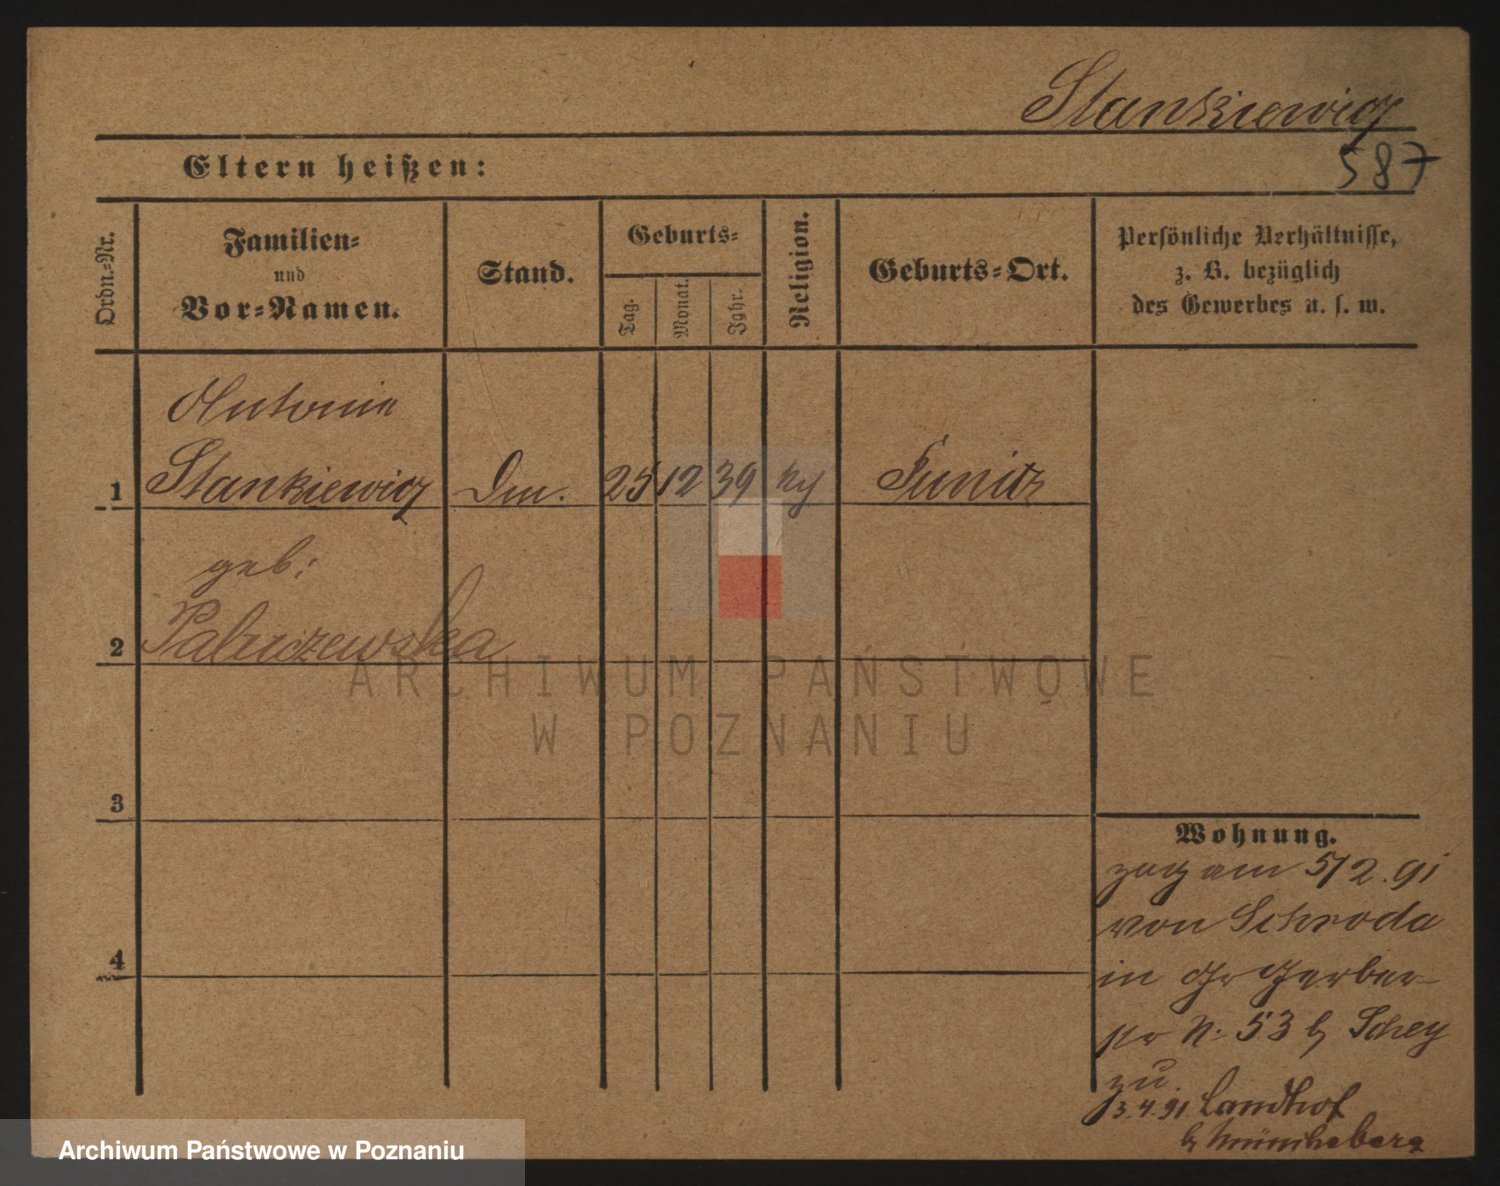 Stankiewicz
587
Eltern heißen:
Ordn.-Nr.
Familien-
und
Vor-Namen.
Stand.
Geburts-
Tag.
Monat.
Jahr.
Religion.
Geburts-Ort.
Persönliche Verhältnisse,
z. B. bezüglich
des Gewerbes u. s. w.
Antonie
1 Stankiewicz 25 12 39 Punitz
geb:
2
3
4
Wohnung.
zog am 5/2.91
von Schroda
in Gr Gerber-
str N. 53 b Schey
zu.
3.4.91. Landhof
b
ARCHIWUM PAŃSTWOWE
W POZNANIU
Archiwum Państwowe w Poznaniu